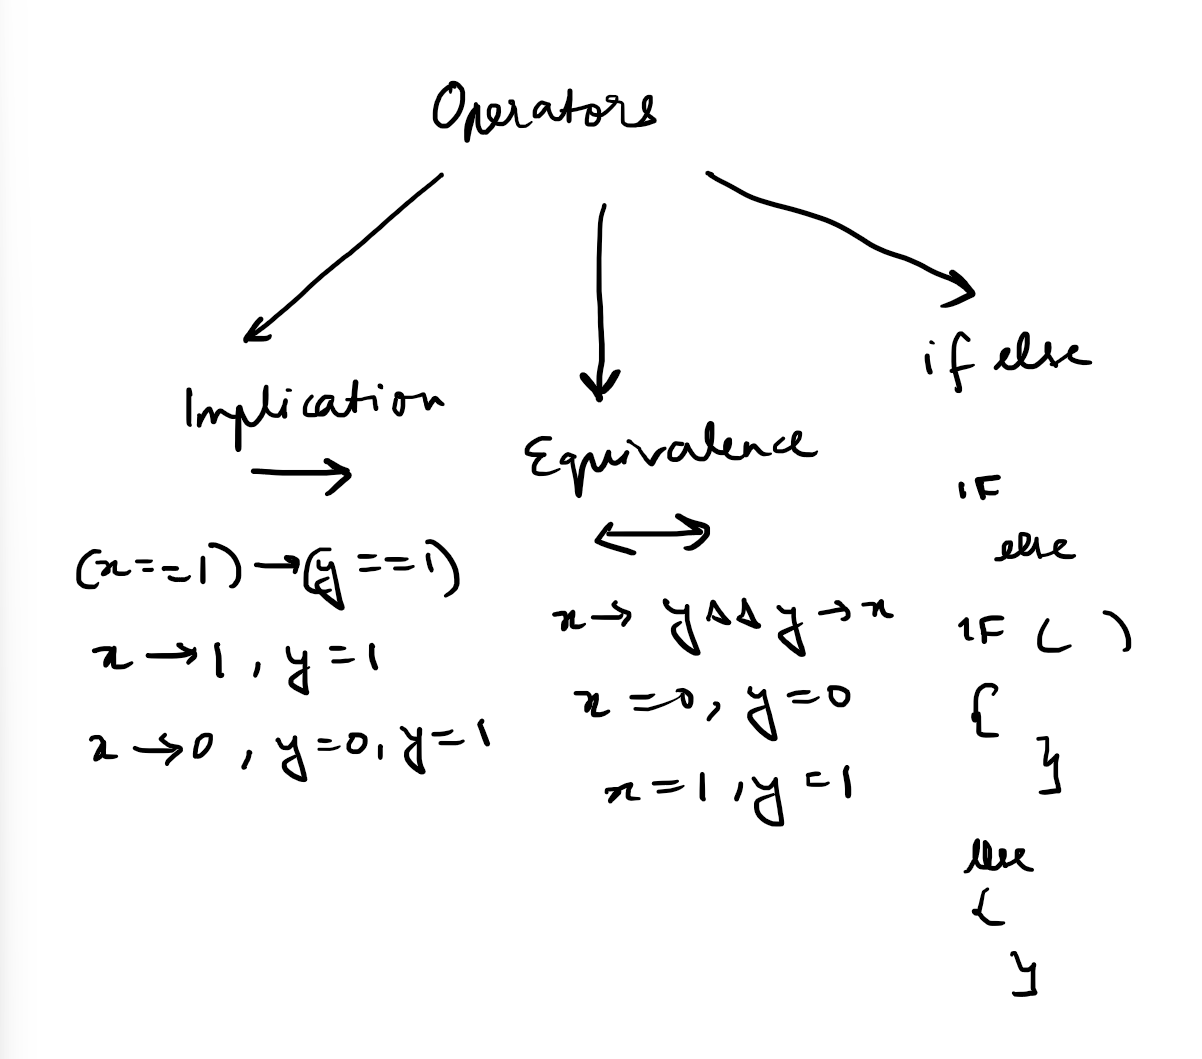 Operators
Implication
→
(x==1)→(y==1)
x→1, y=1
x→0, y=0, y=1
Equivalence
↔
x→y && y→x
x=0, y=0
x=1, y=1
if else
IF
else
IF ( )
{
}
else
{
}